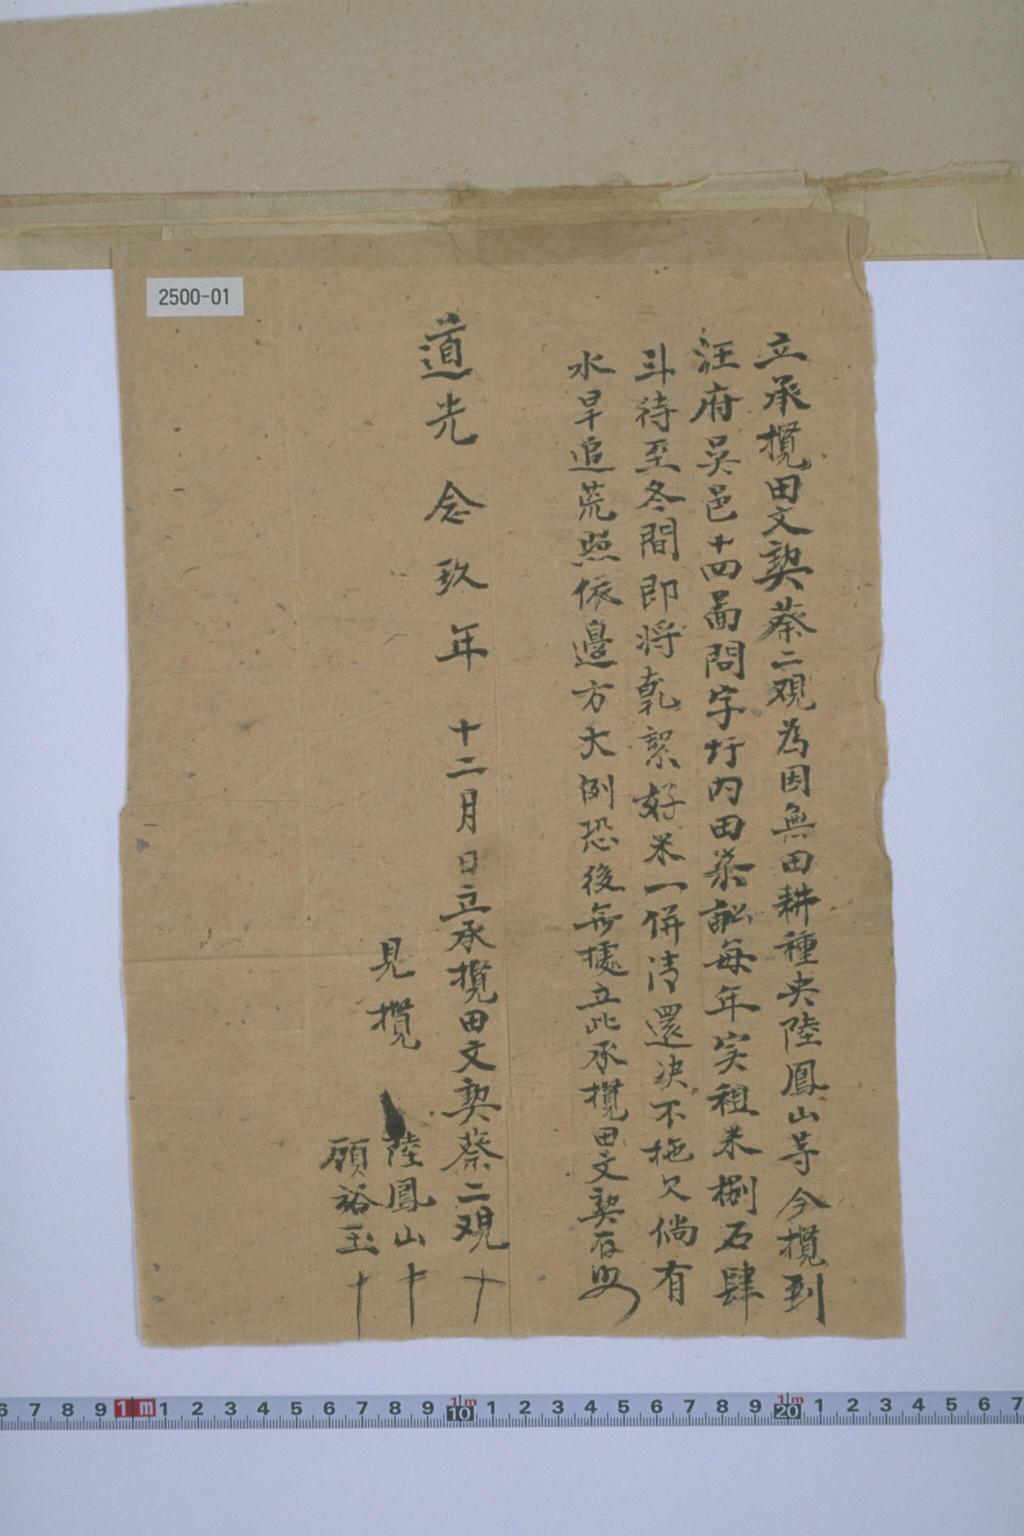 2500-01
立承攬田文契蔡二观為因無田耕種央陸鳳山等今攬到
汪府吳邑十四啚問字圩内田 每年实租米捌石肆
斗待至冬間即将乾絜好米一併清還决不拖欠倘有
水旱追荒照依邉方大例恐後無據立此承攬田文契存照
道光念玖年 十二月 日立承攬田文契蔡二观 十
見攬 陸鳳山 十
顾裕玉 十
6 7 8 9 1m 1 2 3 4 5 6 7 8 9 1m 10 1 2 3 4 5 6 7 8 9 1m 20 1 2 3 4 5 6 7